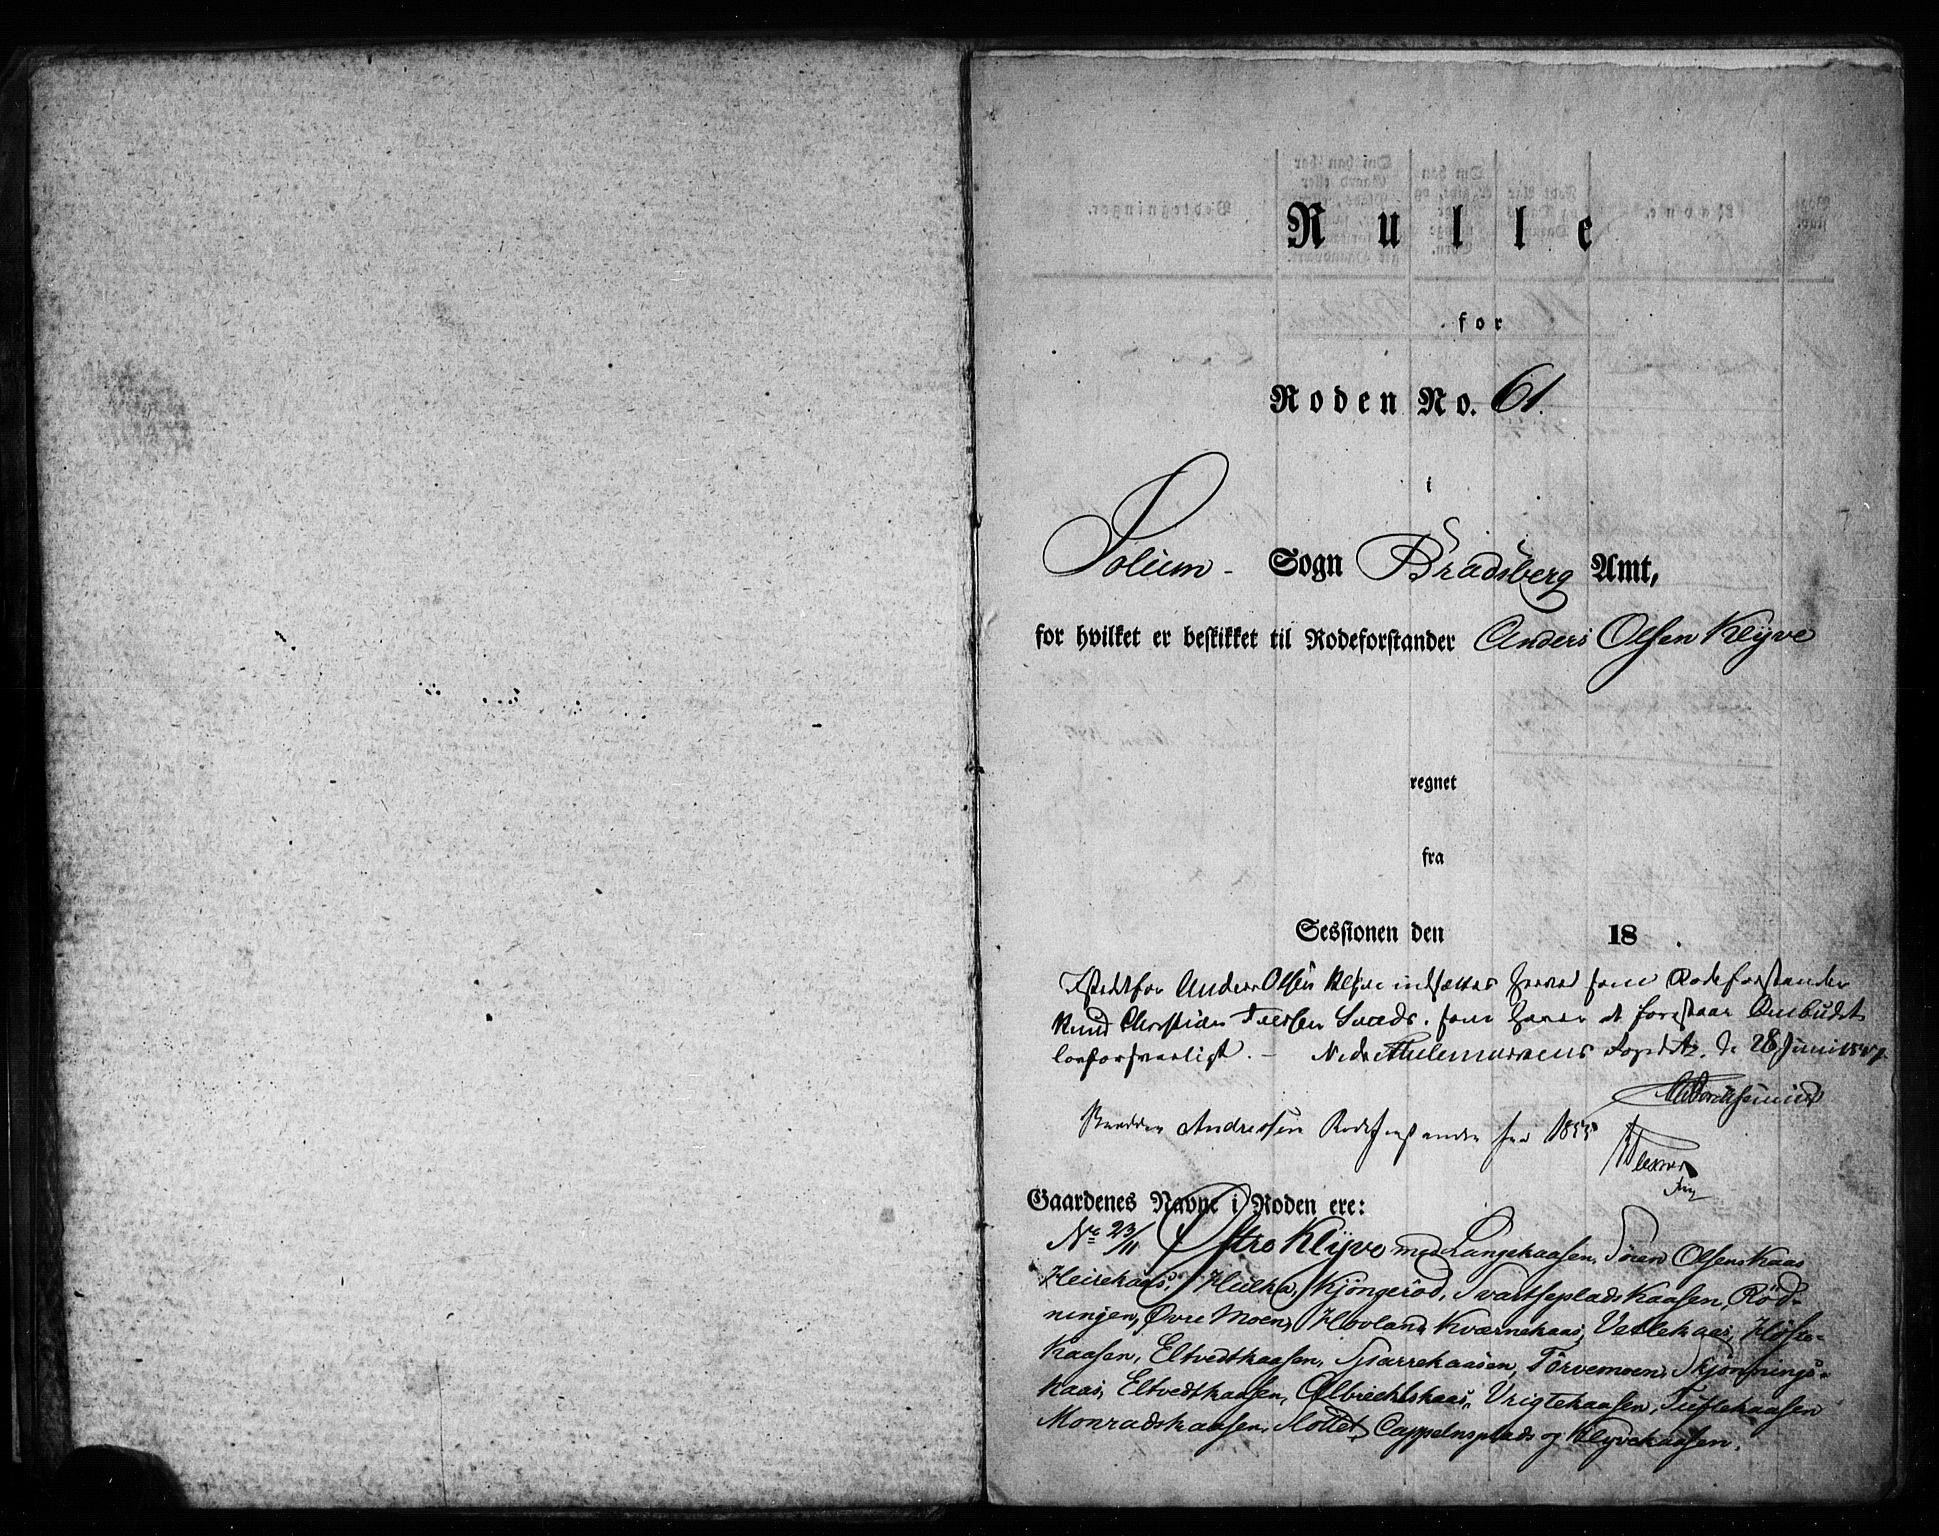 Rulle
for
Roden No. 61.
i
Solum - Sogn Bradsberg Amt,
for hvilket er beskikket til Rodeforstander Anders Olsen Klyve
regnet
fra
Sessionen den 18 .
Istedetfor Anders Olsen Klyve indsættes herved som Rodeforstander
Knud Christian som haver at forestaae Ombudet
lovforsvarligt. - Nedre Thelemarkens Fogderi, de 28 Juni
Andressen Rodeforstander fra 1855
Gaardenes Navne i Roden ere:
No 23/11 Østre Klyve med Langekaasen, Søren Olsens Kaas
Heirekaas, Hulka, Kjøngerød, Svartsepladskaasen, Rød-
ningen, Øvre Moen, Hovland, Kværnekaas, Vetlekaas, Høise-
kaasen, Eltvedtkaasen, Sparrekaasen, Torvemoen, Skjønnings-
kaas, Eltvedtkaasen, Olbrechtskaas, Vrigtekaasen, Tuftekaasen
Monradskaasen, Slottet, Cappelnsplads og Klyvekaasen.